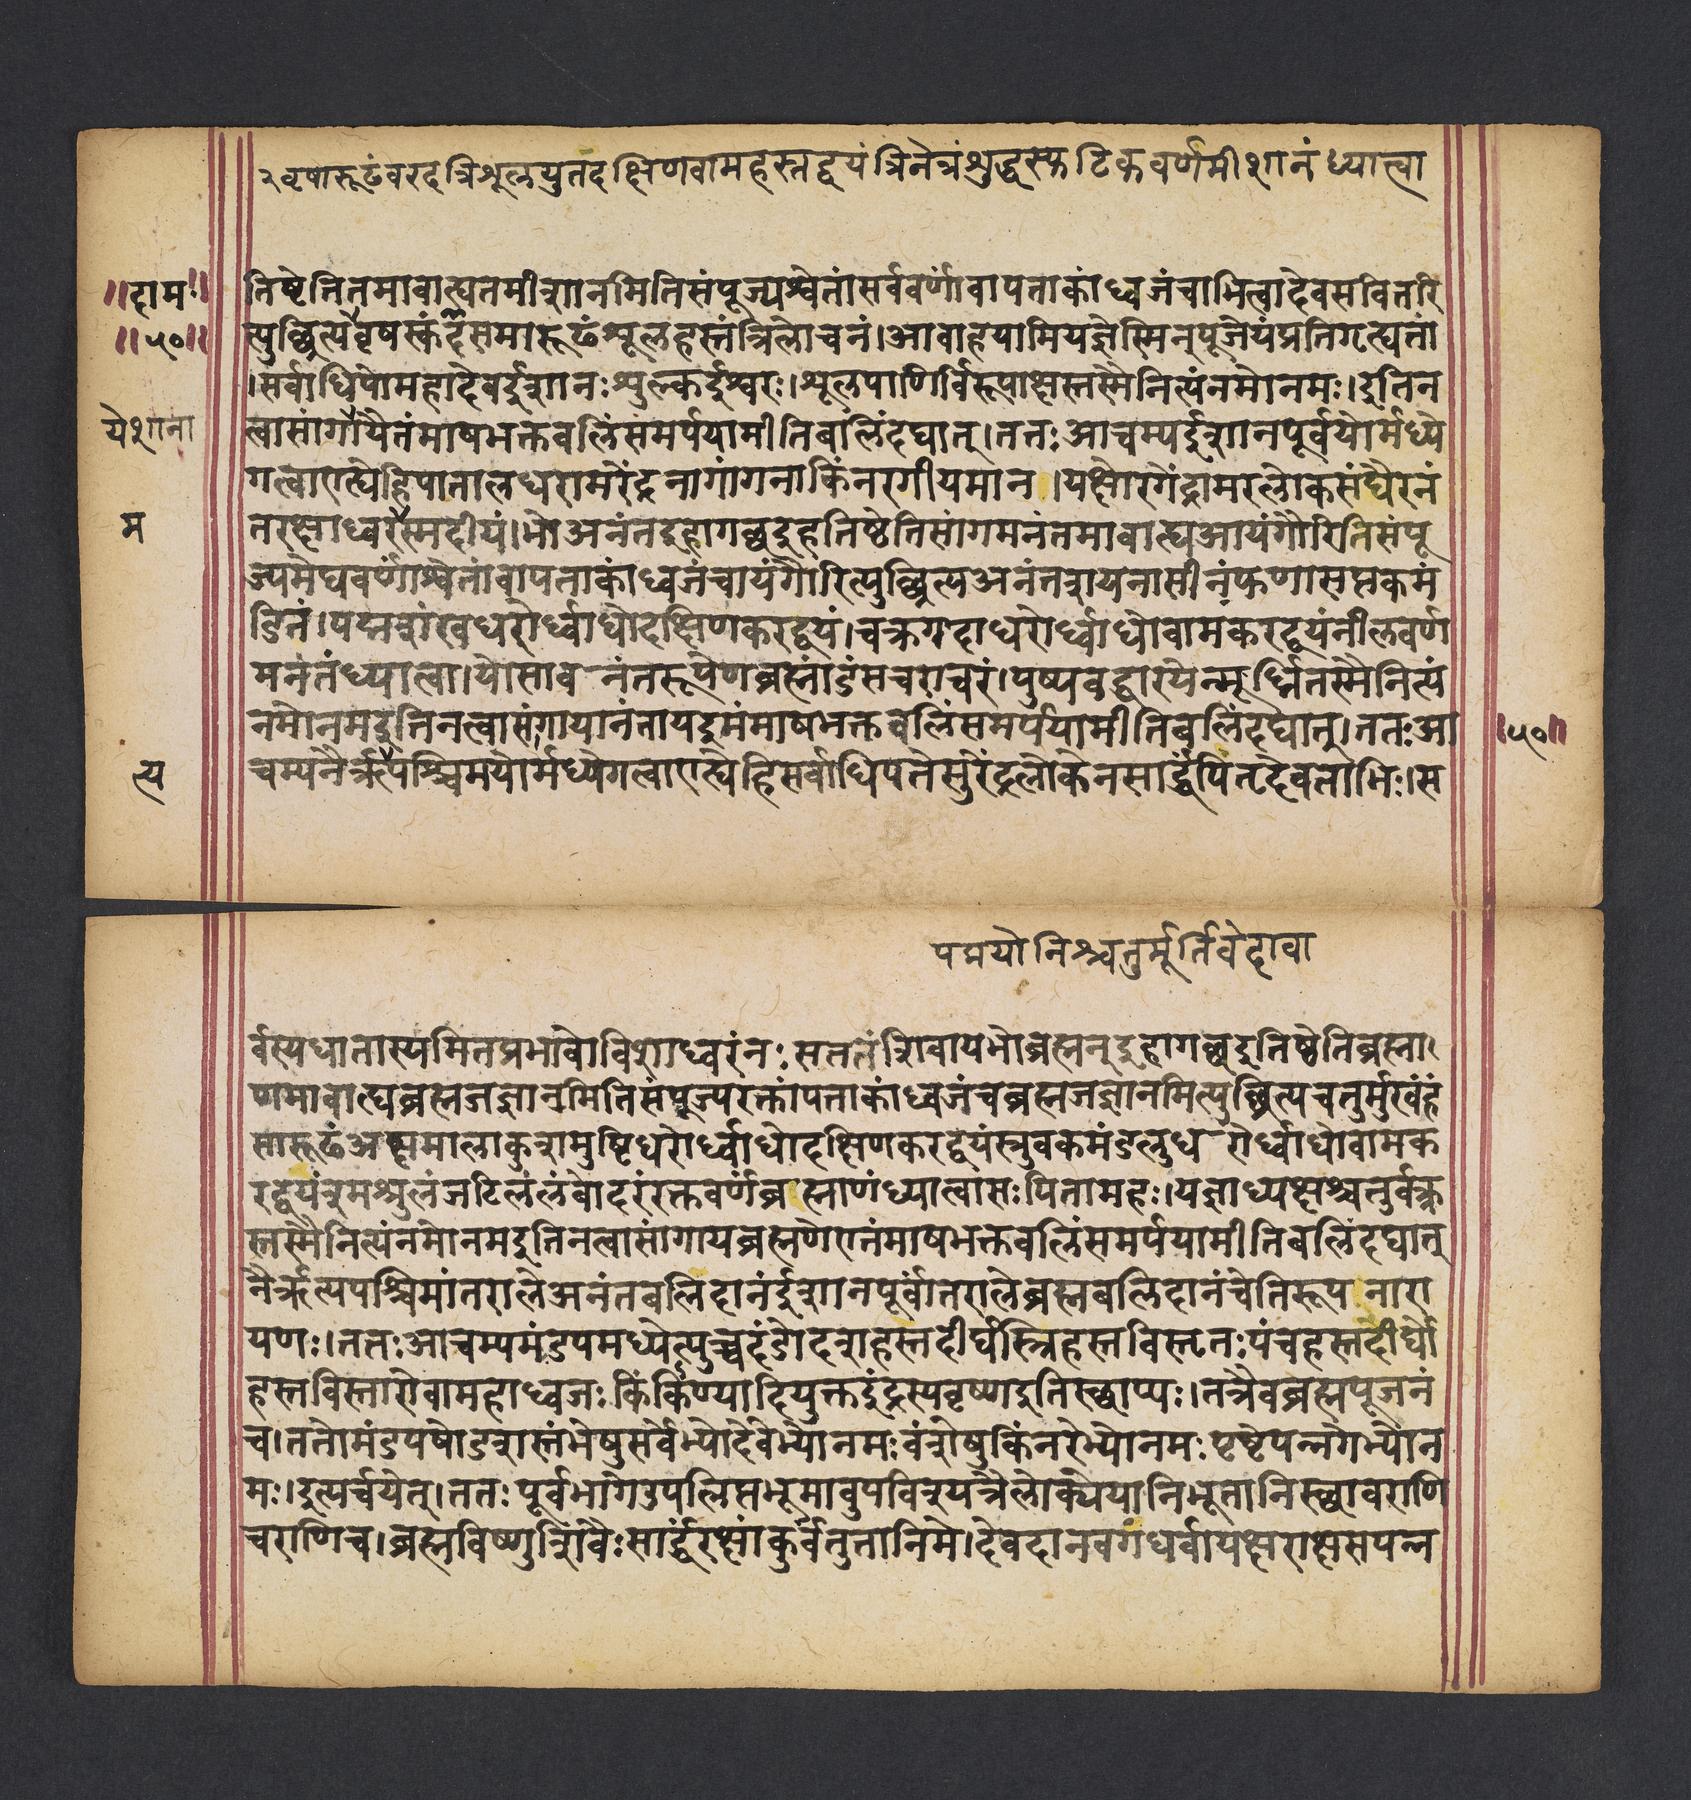 २वृषारूढंवरदत्रिशूलयुतदक्षिणवामहस्तद्वयंत्रिनेत्रंशुद्धस्फटिकवर्णमीशानंध्यात्वा
॥दाम॰॥
तिष्टेतितमावाह्यतमीशानमितिसंपूज्यश्वेतांसर्ववर्णांवापताकांध्वजंचाभित्वादेवसवितरि
॥५०॥
त्युछ्रित्यवृषस्कंदसमारूढंशूलहस्तंत्रिलोचनं।आवाहयामियज्ञेस्मिन्पूजेयंप्रतिगृह्यतां
।सर्वाधिपोमहादेवईशानःशुल्कईश्वरः।शूलपाणिर्विरूपाक्षस्तस्मैनित्यंनमोनमः।इतिन
येशाना
त्वासांगायैतंमाषभक्तबलिंसमर्पयामीतिबलिंदद्यात्।ततःआचम्यईशानपूर्वयोर्मध्ये
गत्वाएह्येहिपातालधरामरेंद्रनागांगनाकिंनरगीयमान।यक्षोरगेंद्रामरलोकसंघैरनं
म
तरक्षाध्वरस्मदीयं।भोअनंतइहागछइहतिष्ठेतिसांगमनंतमावाह्यआयंगौरितिसंपू
ज्यमेघवर्णांश्वेतांवापताकांध्वजंचायंगौरित्युछ्रित्यअनंतशयनासीनंफणासप्तकमं
डितं।पद्मशंखधरोर्ध्वाधोदक्षिणकरद्वयं।चक्रगदाधरोर्ध्वाधोवामकरद्वयंनीलवर्ण
मनंतंध्यात्वा।योसावनंतरूपेणब्रह्मांडंसचराचरं।पुष्पवद्धारयेन्मूर्ध्नितस्मैनित्यं
नमोनमइतिनत्वासंगायानंतायइमंमाषभक्तबलिंसमर्पयामीतिबलिंदद्यात्।ततःआ
॥५०॥
त्य
चम्यनैर्ऋपश्चिमयोर्मध्येगत्वाएह्येहिसर्वाधिपतेसुरेंद्रलोकेनसार्द्धंपितृदेवताभिः।स
पद्मयोनिश्चतुर्मूर्तिर्वेदावा
र्वस्यधातास्यमितप्रभावोविशाध्वरंनःसततंशिवायभोब्रह्मन्इहागछइतिष्ठेतिब्रह्मा
णमावाह्यब्रह्मजज्ञानमितिसंपूज्यरक्तांपताकांध्वजंचब्रह्मजज्ञानमित्युछ्रित्यचतुर्मुखंहं
सारूढंअक्षमालाकुशमुष्टिधरोर्ध्वाधोदक्षिणकरद्वयंस्रुवकमंडलुधरोर्ध्वाधोवामक
रद्वयंश्मश्रुलंजटिलंलंबोदरंरक्तवर्णंब्रह्माणंध्यात्वासःपितामहः।यज्ञाध्यक्षश्चतुर्वक्र
स्तस्मैनित्यंनमोनमइतिनत्वासांगायब्रह्मणेएतंमाषभक्तबलिंसमर्पयामीतिबलिंदद्यात्
नैर्ऋत्यपश्चिमांतरालेअनंतबलिदानंईशानपूर्वांतरालेब्रह्मबलिदानंचेतिरूपनारा
यणः।ततःआचम्यमंडपमध्येत्युच्चदंडोदशहस्तदीर्घस्त्रिहस्तविस्तृतःपंचहस्तदीर्घो
हस्तविस्तारोवामहाध्वजःकिंकिंण्यादियुक्तइंद्रस्यवृष्णइतिस्छाप्यः।तत्रैवब्रह्मपूजनं
च।ततोमंडपषोडशस्तंभेषुसर्वेभ्योदेवेभ्योनमःवंशेषुकिंनरेभ्योनमःपृष्टेपन्नगेभ्योन
मः।इत्यर्चयेत्।ततःपूर्वभागेउपलिप्तभूमावुपविश्यत्रैलोक्येयानिभूतानिस्छावराणि
चराणिच।ब्रह्मविष्णुशिवैःसार्द्धंरक्षांकुर्वंतुतानिमे।देवदानवगंधर्वायक्षराक्षसपन्न